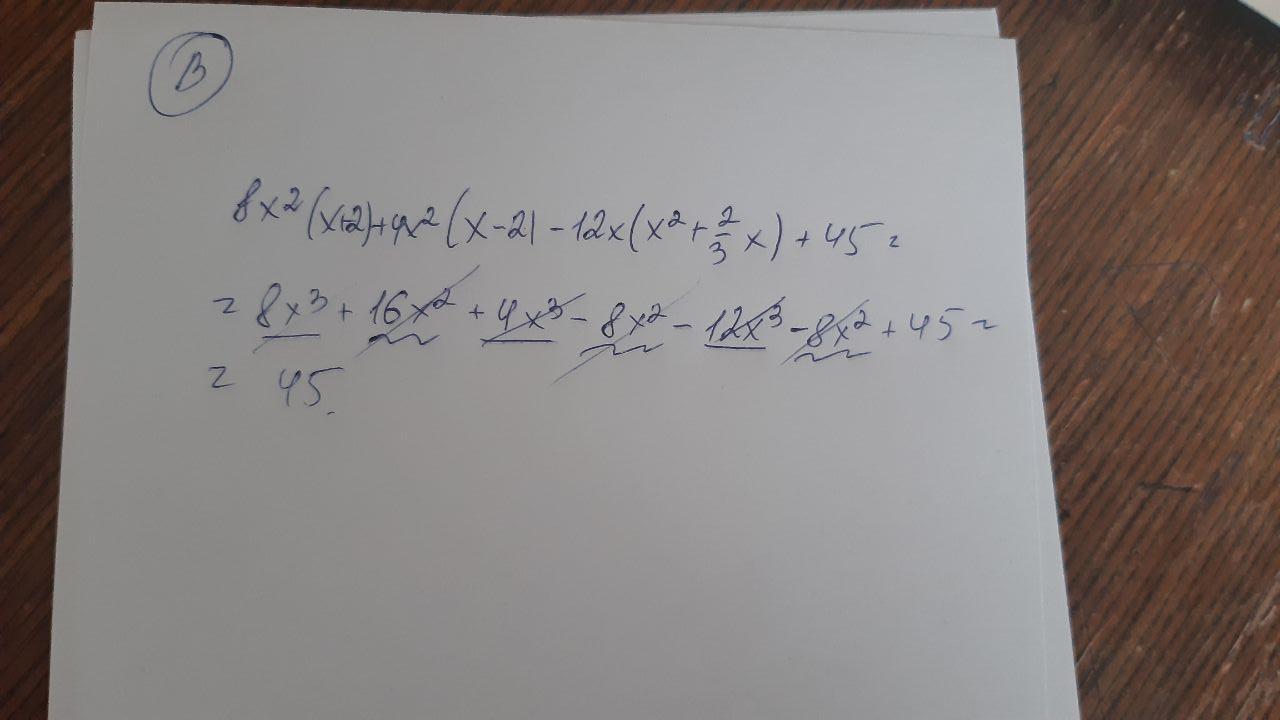 B
8x²(x+2)+4x²(x-2)-12x(x²+2/3x)+45=
=8x³+16x²+4x³-8x²-12x³-8x²+45=
= 45.